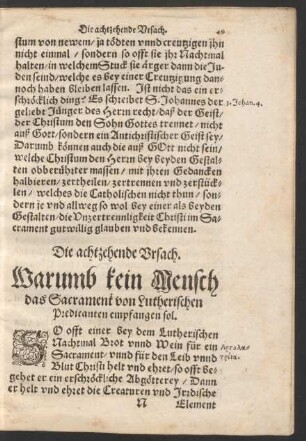 Die achtzehende Vrsach. 49
stum von newem/ ja tödten vnnd creutzigen jhn
nicht einmal/ sondern so offt sie jhr Nachtmal
halten/ in welchem Stuck sie ärger dann die Ju-
den seind/ welche es bey einer Creutzigung dan-
noch haben bleiben lassen. Ist nicht das ein er-
schröcklich ding? Es schreibet S. Johannes der
1. Johan. 4.
geliebt Jünger des Herrn recht/ daß der Geist/
der Christum den Sohn Gottes trennet/ nicht
auß Gott/ sondern ein Antichristischer Geist sey/
Darumb können auch die auß GOtt nicht sein/
welche Christum den Herrn bey beyden Gestal-
ten obberührter massen/ mit jhren Gedancken
halbieren/ zertheilen/ zertrennen vnd zerstück-
len/ welches die Catholischen nicht thun/ son-
dern je vnd allweg so wol bey einer als beyden
Gestalten/ die Vnzertrennligkeit Christi im Sa-
crament gutwillig glauben vnd bekennen.
Die achtzehende Vrsach.
Warumb kein Mensch
das Sacrament von Lutherischen
Predicanten empfangen sol.
SO offt einer bey dem Lutherischen
Nachtmal Brot vnnd Wein für ein
Sacrament/ vnnd für den Leib vnnd
Blut Christi helt vnd ehret/ so offt be-
gehet er ein erschröckliche Abgötterey/ Dann
er helt vnd ehret die Creaturen vnd Irrdische
N Element